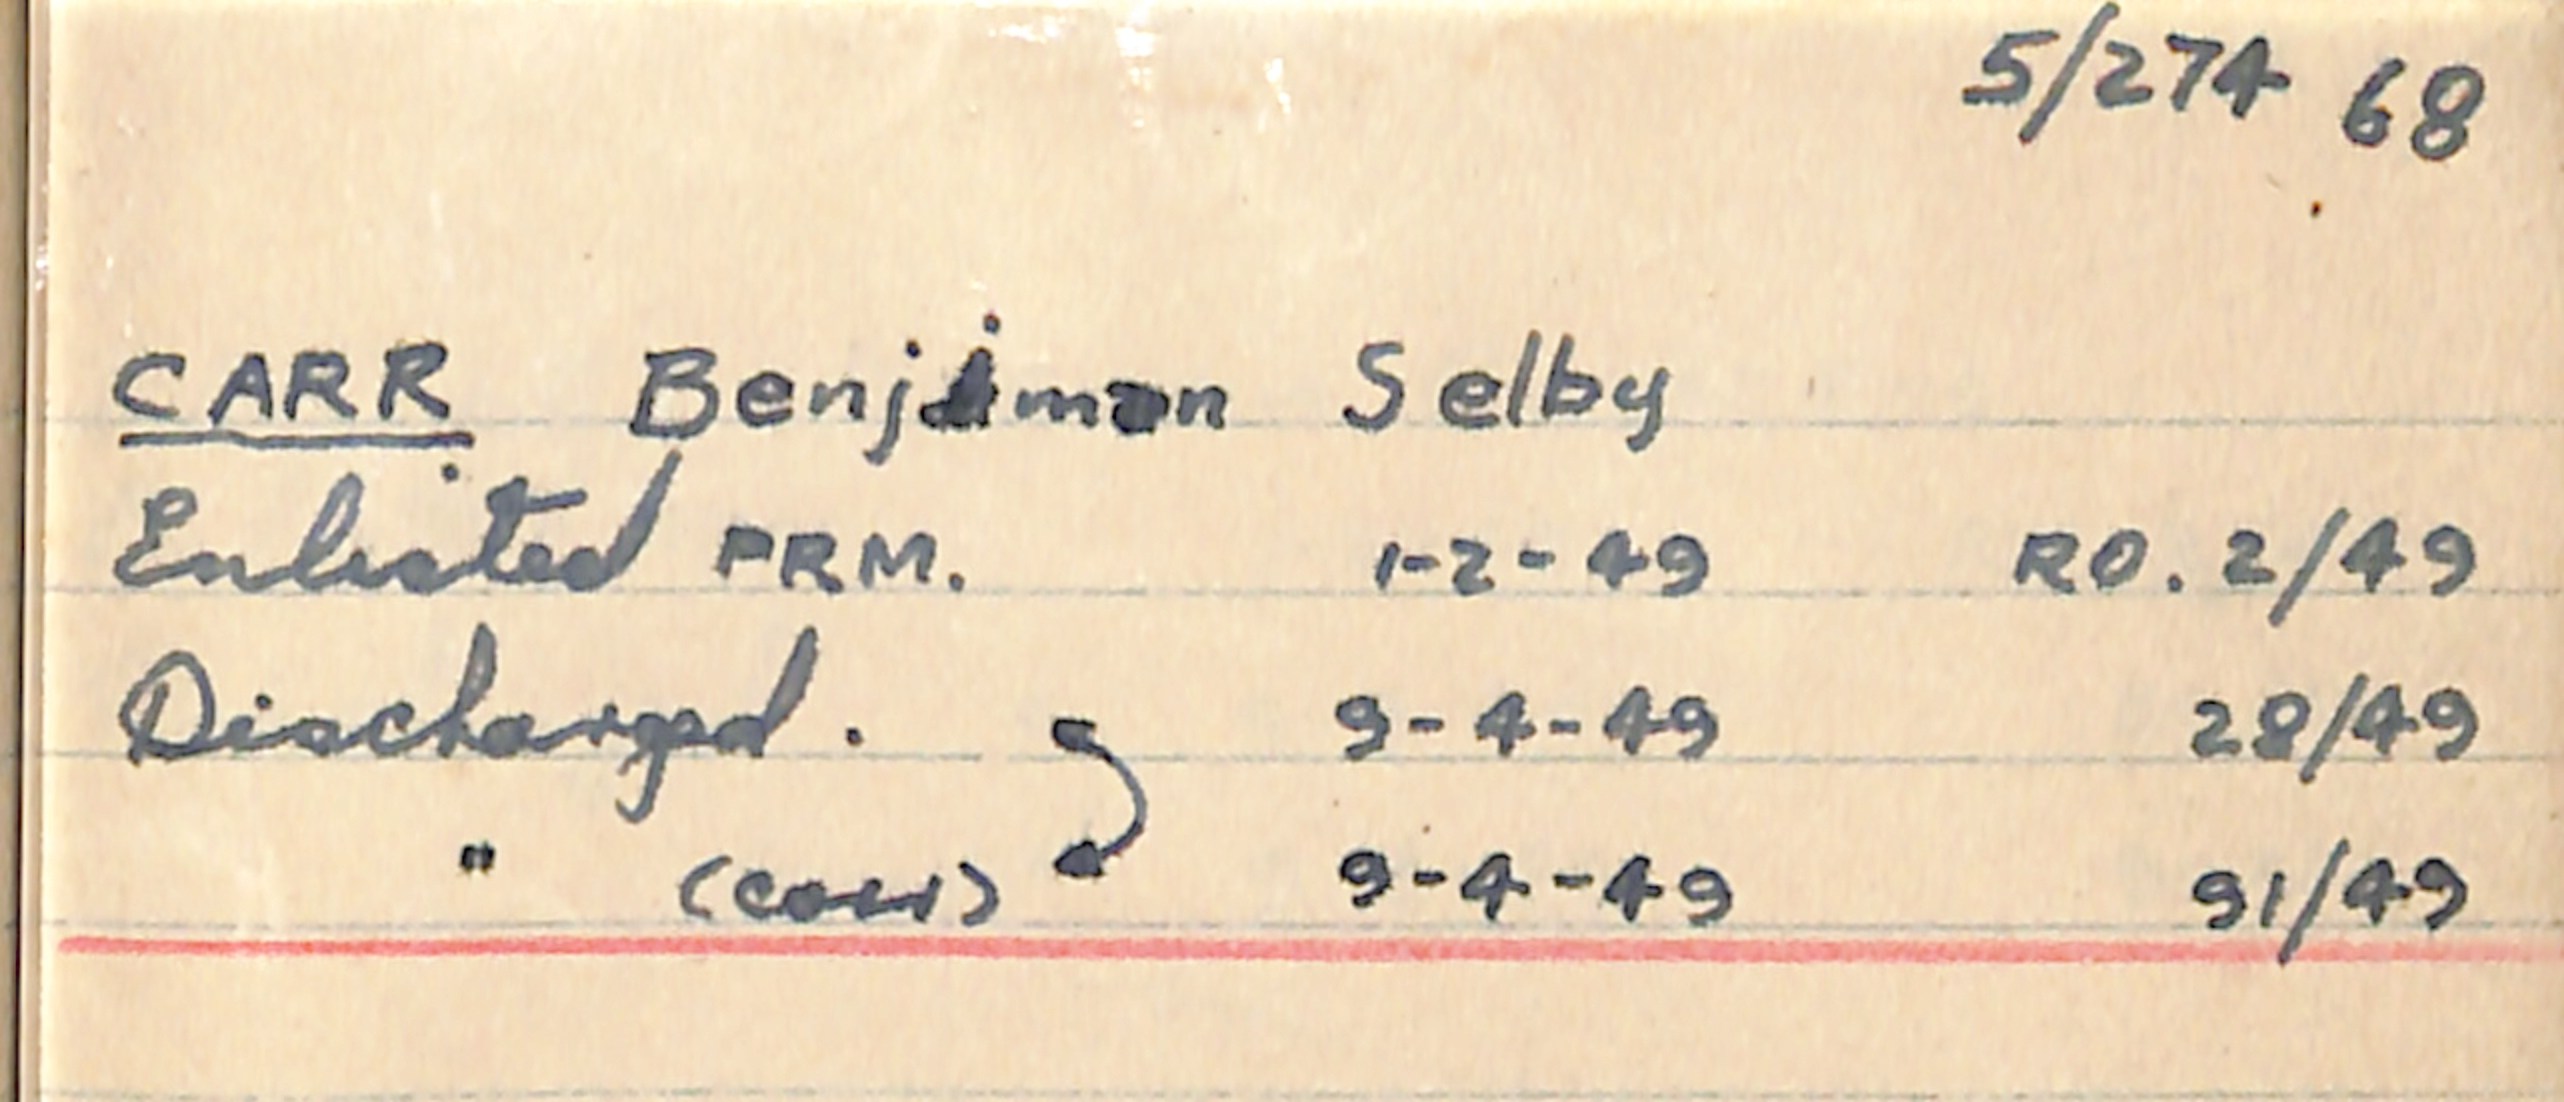 5/274 68
CARR Benjimon Selby
Enlisted PRM. 1-2-49 RO. 2/49
Discharged. 9-4-49 28/49
" (corr) 9-4-49 91/49